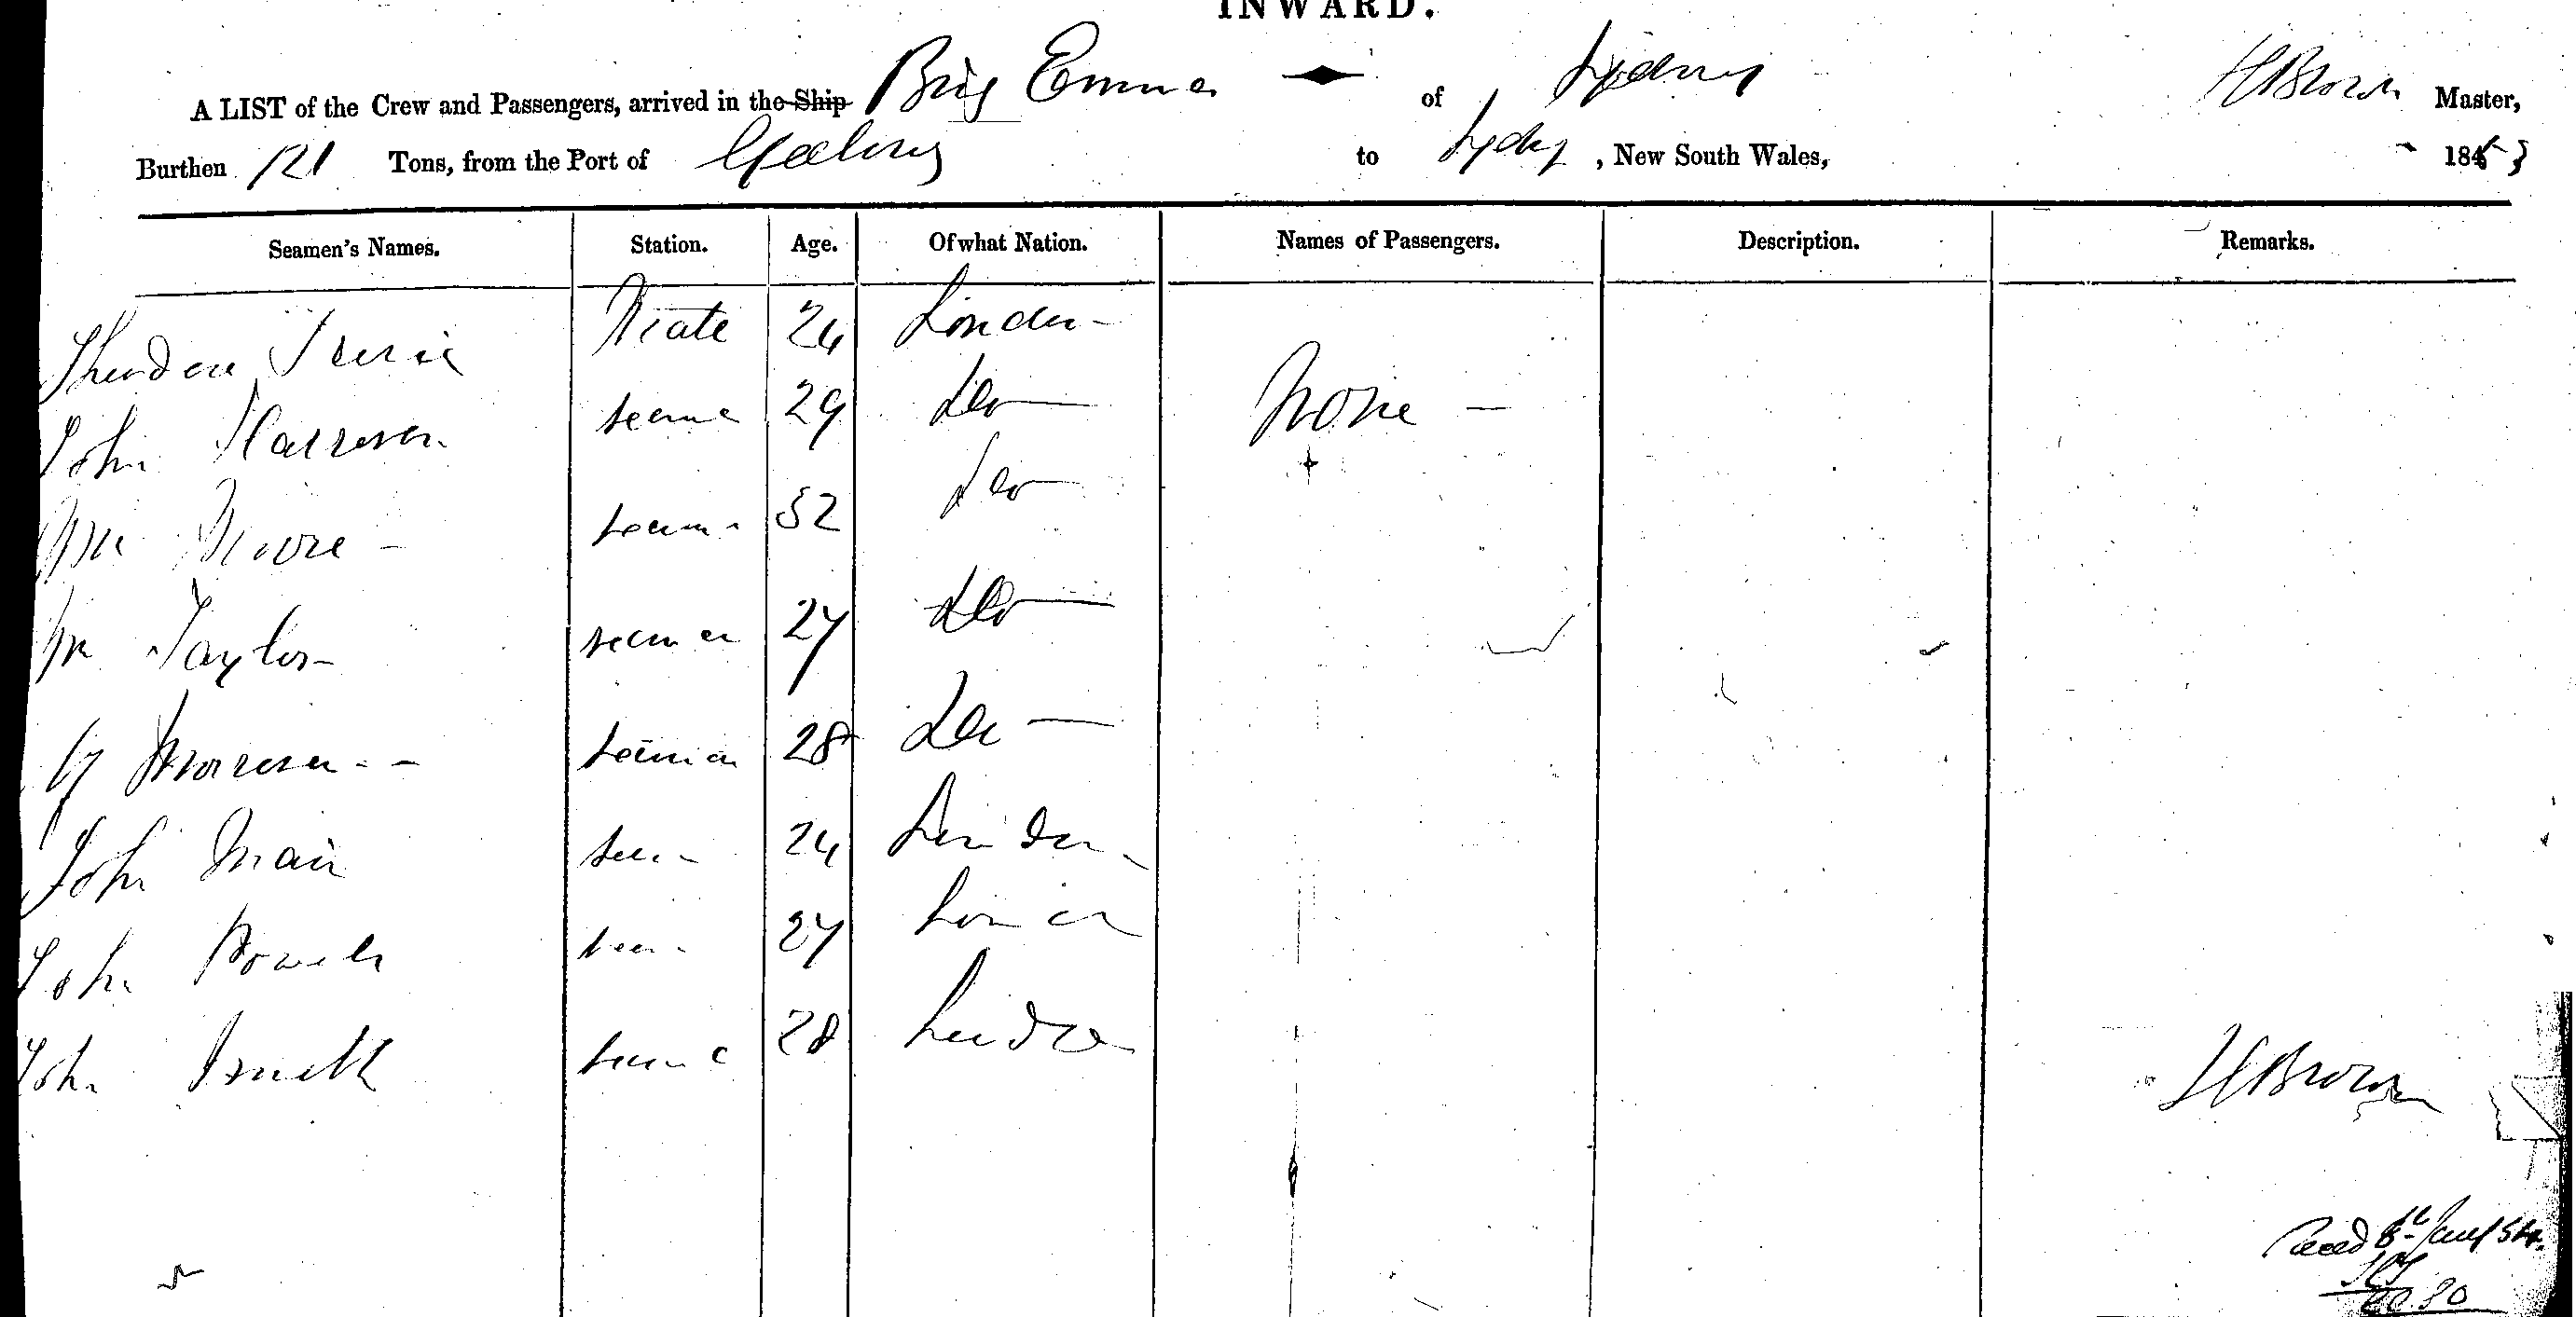 INWARD.
A LIST of the Crew and Passengers, arrived in the Ship Brig Emma of Sydney H Brown Master,
Burthen 121 Tons, from the Port of Geelong to Sydney, New South Wales, 1853
Seamen's Names. Station. Age. Of what Nation. Names of Passengers. Description. Remarks.
Theodore Mate 24 London -
John Harrison seaman 29 Do — None —
Wm Moore - seaman 52 Do —
Wm Taylor seaman 27 Do —
Morrison - - seaman 28 Do —
John Main sea - 24 London -
John Powell sea - 27 London
John Smith seama 28 London
H Brown
Recd 6th Jany 54.